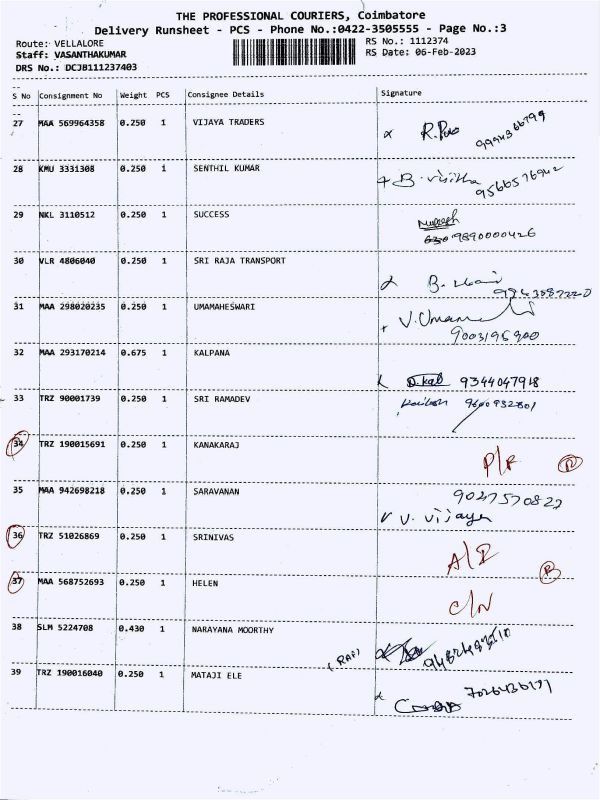 THE PROFESSIONAL COURIERS, Coimbatore
Delivery Runsheet - PCS - Phone No.:0422-3505555 - Page No.:3
Route: VELLALORE RS No.: 1112374
Staff: VASANTHAKUMAR RS Date: 06-Feb-2023
DRS No.: DCJB111237403
S No Consignment No Weight PCS Consignee Details Signature
27 MAA 569964358 0.250 1 VIJAYA TRADERS
28 KMU 3331308 0.250 1 SENTHIL KUMAR
29 NKL 3110512 0.250 1 SUCCESS
9890000426
30 VLR 4806040 0.250 1 SRI RAJA TRANSPORT
31 MAA 298020235 0.250 1 UMAMAHESWARI
9003195900
32 MAA 293170214 0.675 1 KALPANA
D.kal 9344047918
33 TRZ 90001739 0.250 1 SRI RAMADEV
9600932801
34 TRZ 190015691 0.250 1 KANAKARAJ
35 MAA 942698218 0.250 1 SARAVANAN
9027570822
V. Vijaya
36 TRZ 51026869 0.250 1 SRINIVAS
37 MAA 568752693 0.250 1 HELEN
C/N
38 SLM 5224708 0.430 1 NARAYANA MOORTHY
39 TRZ 190016040 0.250 1 MATAJI ELE